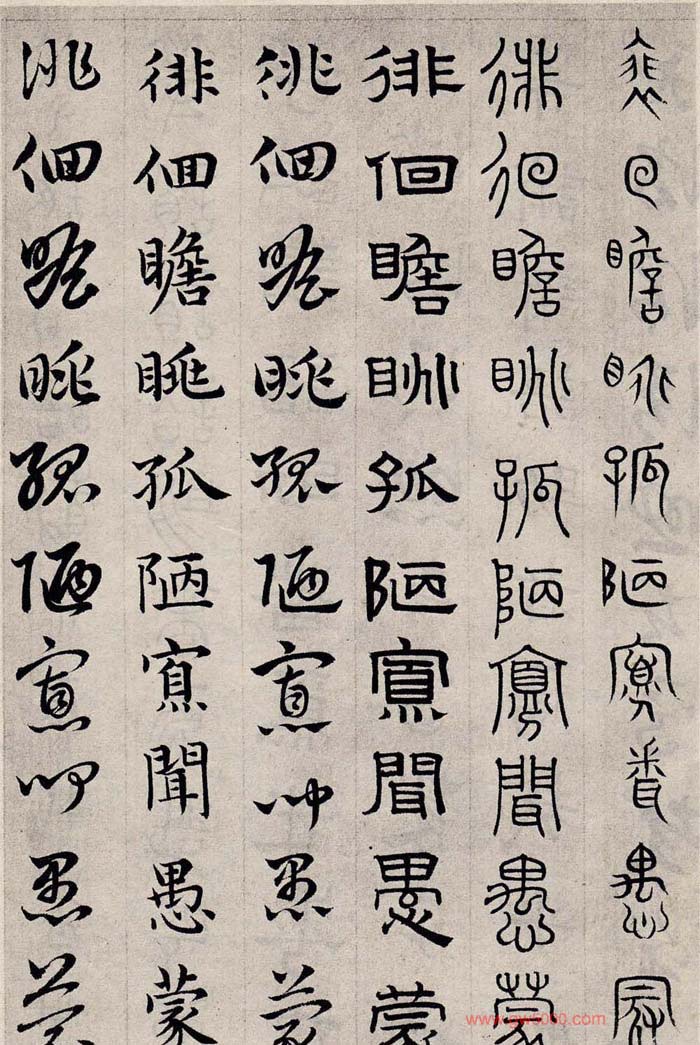 徘徊瞻眺孤陋寡聞愚蒙
徘徊瞻眺孤陋寡聞愚蒙
徘徊瞻眺孤陋寡聞愚蒙
徘徊瞻眺孤陋寡聞愚蒙
徘徊瞻眺孤陋寡聞愚蒙
徘徊瞻眺孤陋寡聞愚蒙
www.gw5000.com